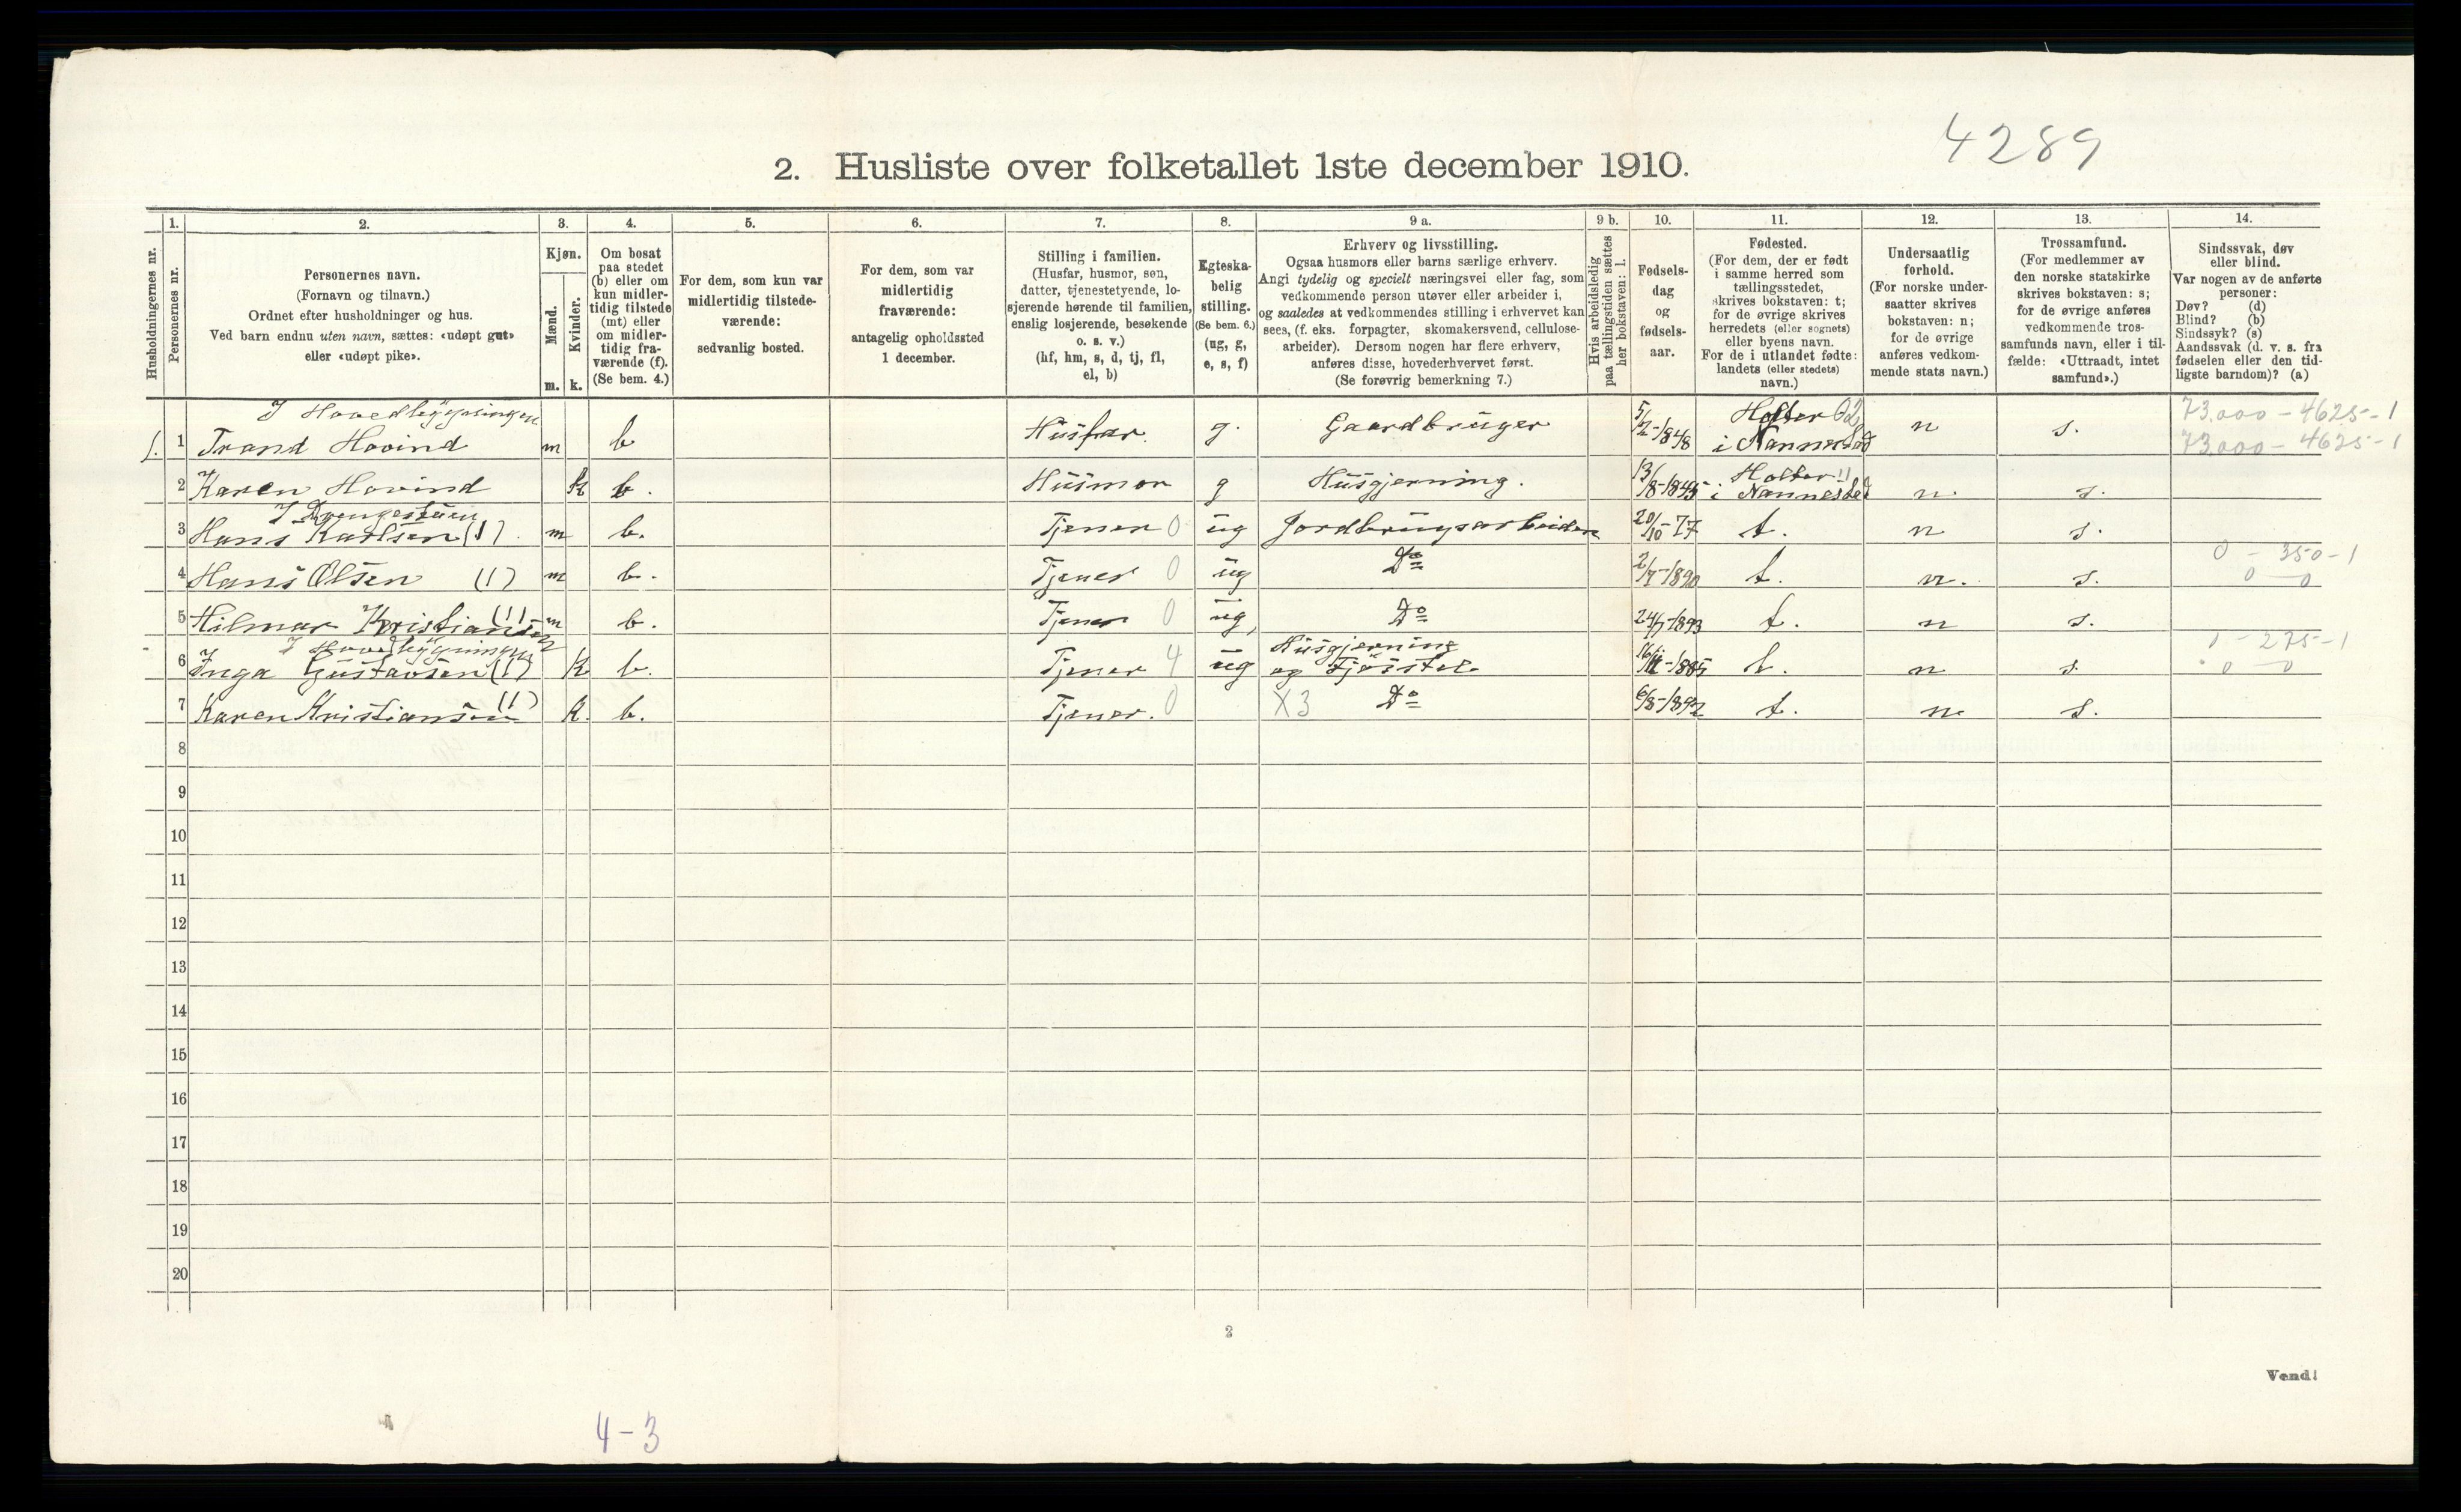 4289
2. Husliste over folketallet 1ste december 1910.
Husholdningernes nr.
1.
Personernes nr.
2.
Personernes navn.
(Fornavn og tilnavn.)
Ordnet efter husholdninger og hus.
Ved barn endnu uten navn, sættes: «udøpt gut»
eller «udøpt pike».
3.
Kjøn.
Mænd.
Kvinder.
m. k.
4.
Om bosat
paa stedet
(b) eller om
kun midler-
tidig tilstede
(mt) eller
om midler-
tidig fra-
værende (f).
(Se bem. 4.)
5.
For dem, som kun var
midlertidig tilstede-
værende:
sedvanlig bosted.
6.
For dem, som var
midlertidig
fraværende:
antagelig opholdssted
1 december.
7.
Stilling i familien.
(Husfar, husmor, søn,
datter, tjenestetyende, lo-
sjerende hørende til familien,
enslig losjerende, besøkende
o. s. v.)
(hf, hm, s, d, tj, fl,
el, b)
8.
Egteska-
belig
stilling.
(Se bem. 6.)
(ug, g,
e, s, f)
9 a.
Erhverv og livsstilling.
Ogsaa husmors eller barns særlige erhverv.
Angi tydelig og specielt næringsvei eller fag, som
vedkommende person utøver eller arbeider i,
og saaledes at vedkommendes stilling i erhvervet kan
sees, (f. eks. forpagter, skomakersvend, cellulose-
arbeider). Dersom nogen har flere erhverv,
anføres disse, hovederhvervet først.
(Se forøvrig bemerkning 7.)
9 b.
Hvis arbeidsledig
paa tællingstiden sættes
her bokstaven: l.
10.
Fødsels-
dag
og
fødsels-
aar.
11.
Fødested.
(For dem, der er født
i samme herred som
tællingsstedet,
skrives bokstaven: t;
for de øvrige skrives
herredets (eller sognets)
eller byens navn.
For de i utlandet fødte:
landets (eller stedets)
navn.)
12.
Undersaatlig
forhold.
(For norske under-
saatter skrives
bokstaven: n;
for de øvrige
anføres vedkom-
mende stats navn.)
13.
Trossamfund.
(For medlemmer av
den norske statskirke
skrives bokstaven: s;
for de øvrige anføres
vedkommende tros-
samfunds navn, eller i til-
fælde: «Uttraadt, intet
samfund».)
14.
Sindssvak, døv
eller blind.
Var nogen av de anførte
personer:
Døv? (d)
Blind? (b)
Sindssyk? (s)
Aandssvak (d. v. s. fra
fødselen eller den tid-
ligste barndom)? (a)
I Hovedbygningen
1. 1 Trond Hovind m b Husfar. g. Gaardbruger 5/2-1848 Holter 02 i Nannestad n s. 73.000 - 4625 - 1
73.000 - 4625 - 1
2 Karen Hovind K b. Husmor g Husgjerning. 13/8-1845 Holter 11 i Nannestad n. s.
I Drengestuen
3 Hans Karlsen (1). m b. Tjener 0 ug Jordbrugsarbeider 20/10-77 t. n s.
4 Hans Olsen (1) m b. Tjener 0 ug Do 2/7-1890 t. n. s. 0 - 350 - 1
0 - 0
5 Hilmar Kristiansen (1) m b. Tjener 0 ug, Do 24/7-1893 t. n s.
I Hovedbygningen
6 Inga Gustavsen (1) K b. Tjener 4 ug Husgjerning og Fjøsstel 16/11-1885 t. n s. 0 - 275 - 1
0 - 0
7 Karen Kristiansen (1) K. b. Tjener. 0 X3 Do 6/8-1892 t. n. s.
8
9
10
11
12
13
14
15
16
17
18
19
20
2
Vend!
4-3